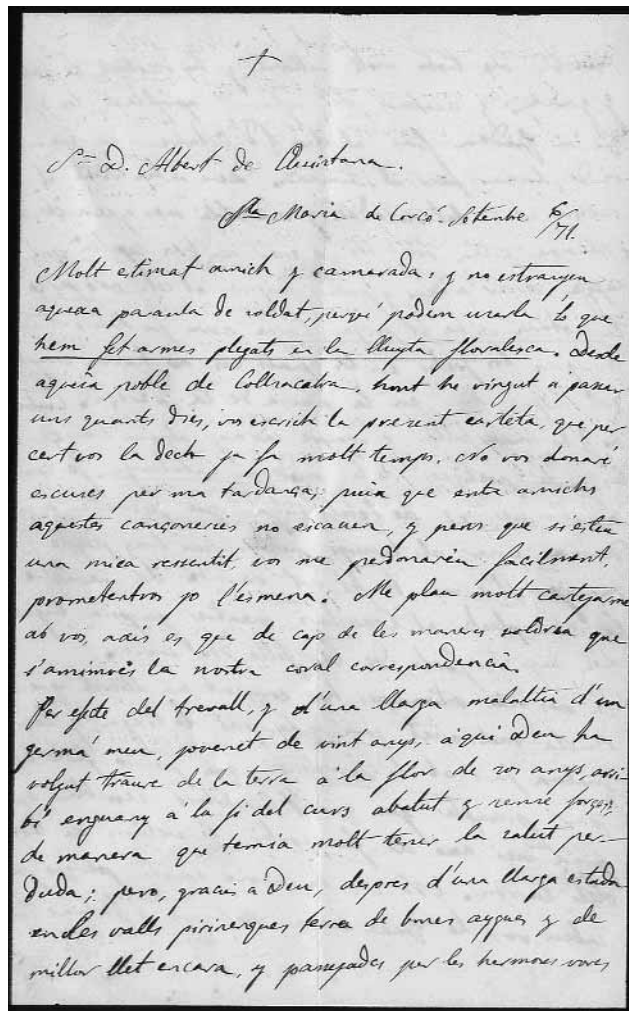 Sr. D. Albert de Quintana.
Sta Maria de Corcó. Setembre 6/71.
Molt estimat amich y camarada: y no estranyeu
aqueixa paraula de soldat, perqué podem usarla los que
hem fet armes plegats en la lluyta floralesca. Desde
aqueix poble de Collsacabra, hont he vingut á passar
uns quants dies, vos escrich la present carteta, que per
cert vos la dech ja fa molt temps. No vos donaré
escuses per ma tardança; puix que entre amichs
aquestes cançoneries no escauen, y penso que si esteu
una mica ressentit, vos me perdonareu facilment,
prometentvos jo l'esmena. Me plau molt cartejarme
ab vos, axis es que de cap de les maneres voldria que
s'amimvés la nostra coral correspondencia.
Per efecte del trevall, y d'una llarga malaltia d'un
germá meu, jovenet de vint anys, á qui Deu ha
volgut traure de la terra á la flor de sos anys, arri-
bí enguany á la fi del curs abatut y sense forçes;
de manera que temia molt tenir la salut per-
duda; pero, gracies a Deu, despres d'una llarga estada
en les valls pirinenques terra de bones aygues y de
millor llet encara, y passejades per les hermoses vores